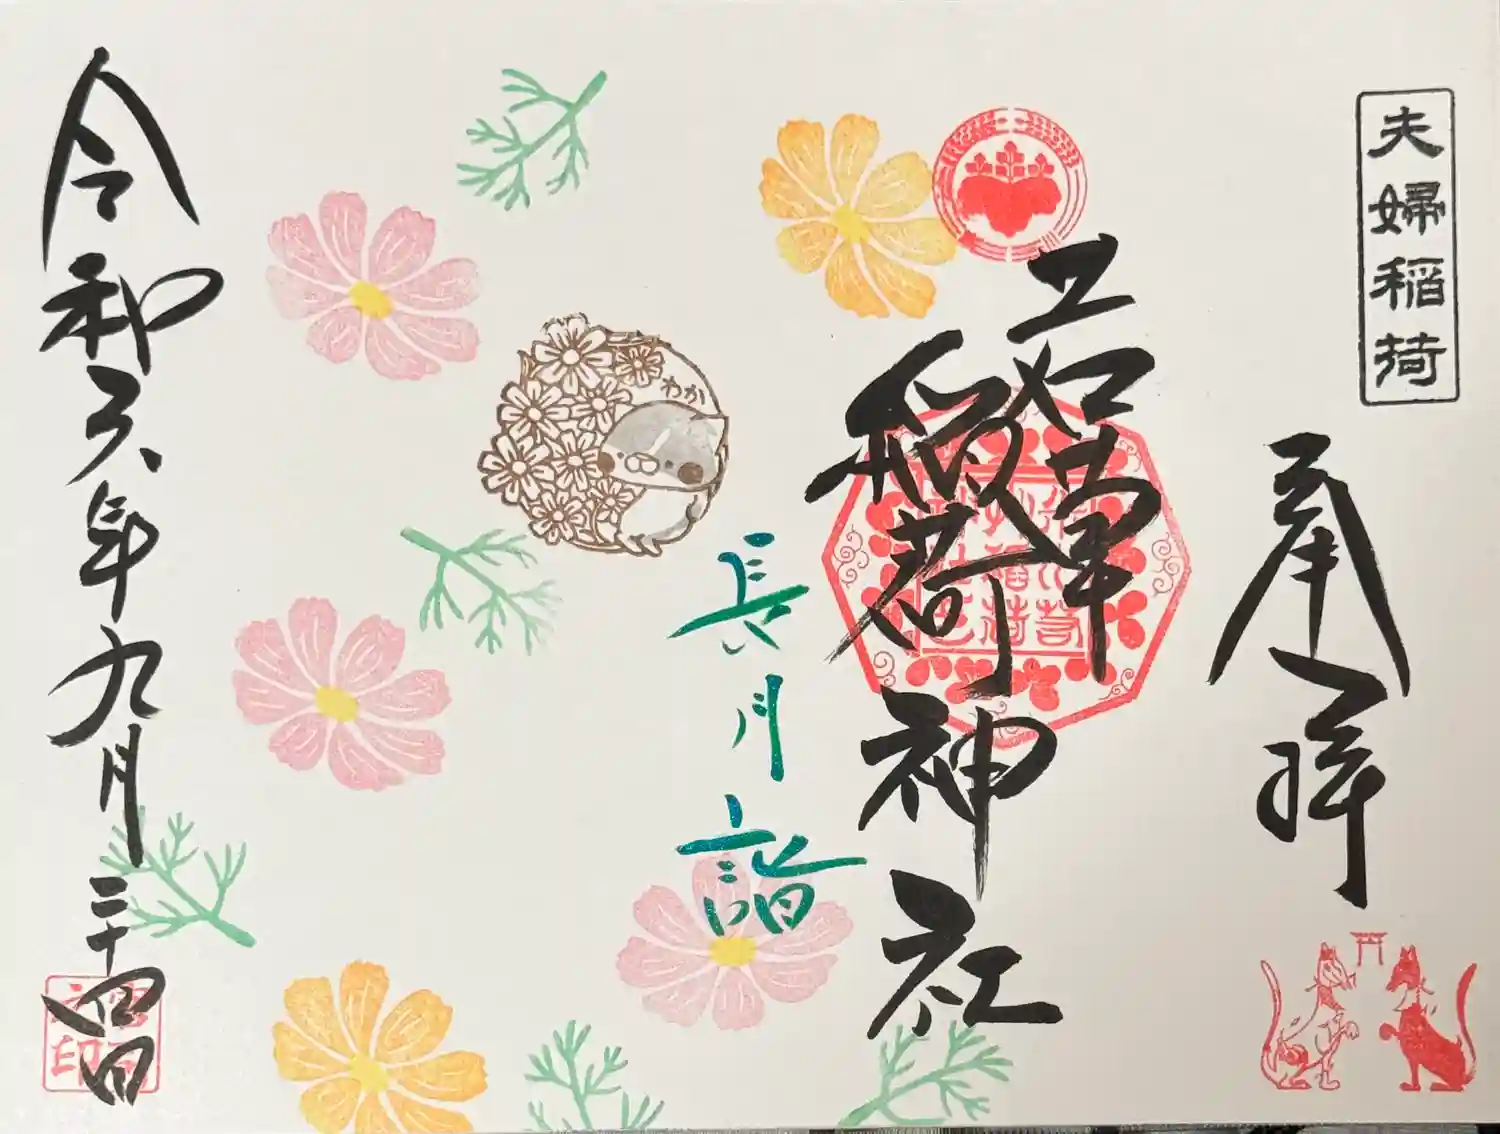 夫婦稲荷
奉拝
稲荷神社
長月詣
わか
令和六年九月二十四日